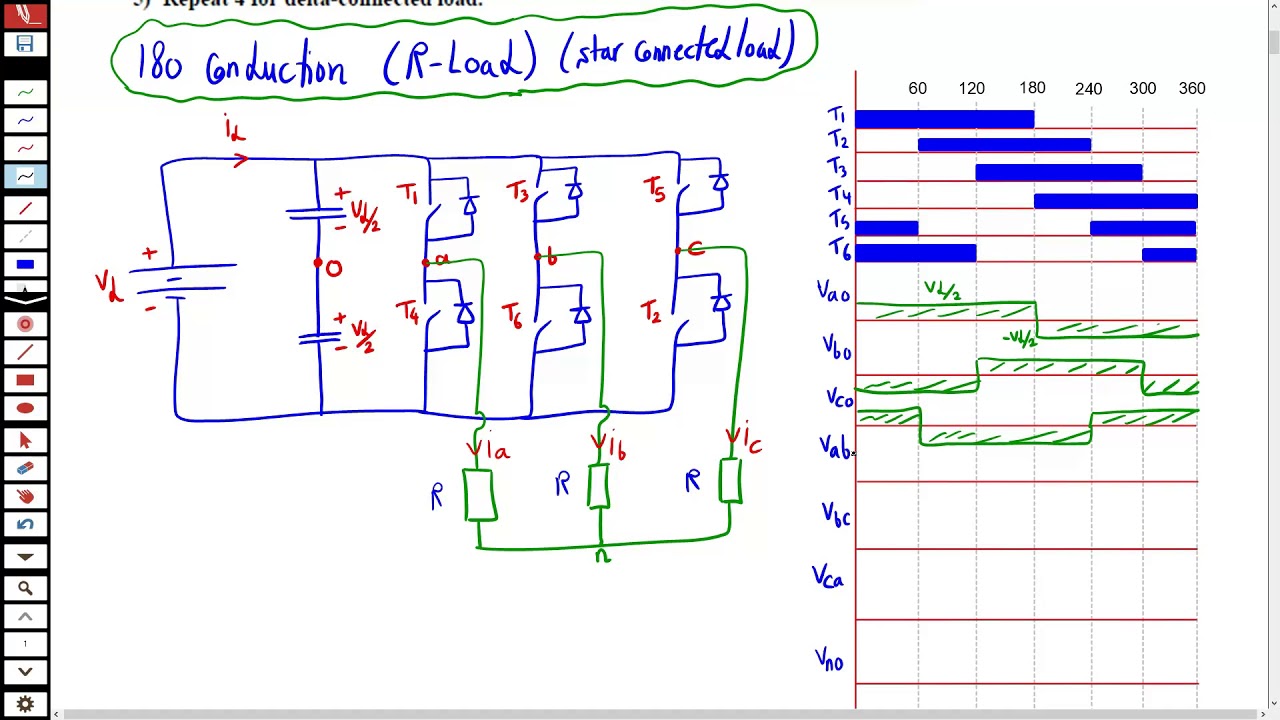 5) Repeat 4 for delta-connected load.
180 Conduction (R-Load) (star connected load)
id
+
Vd/2
-
O
+
Vd/2
-
+
Vd
-
T1
T3
T5
a
b
c
T4
T6
T2
ia
ib
ic
R
R
R
n
60 120 180 240 300 360
T1
T2
T3
T4
T5
T6
Vao
Vd/2
-Vd/2
Vbo
Vco
Vab
Vbc
Vca
Vno
1